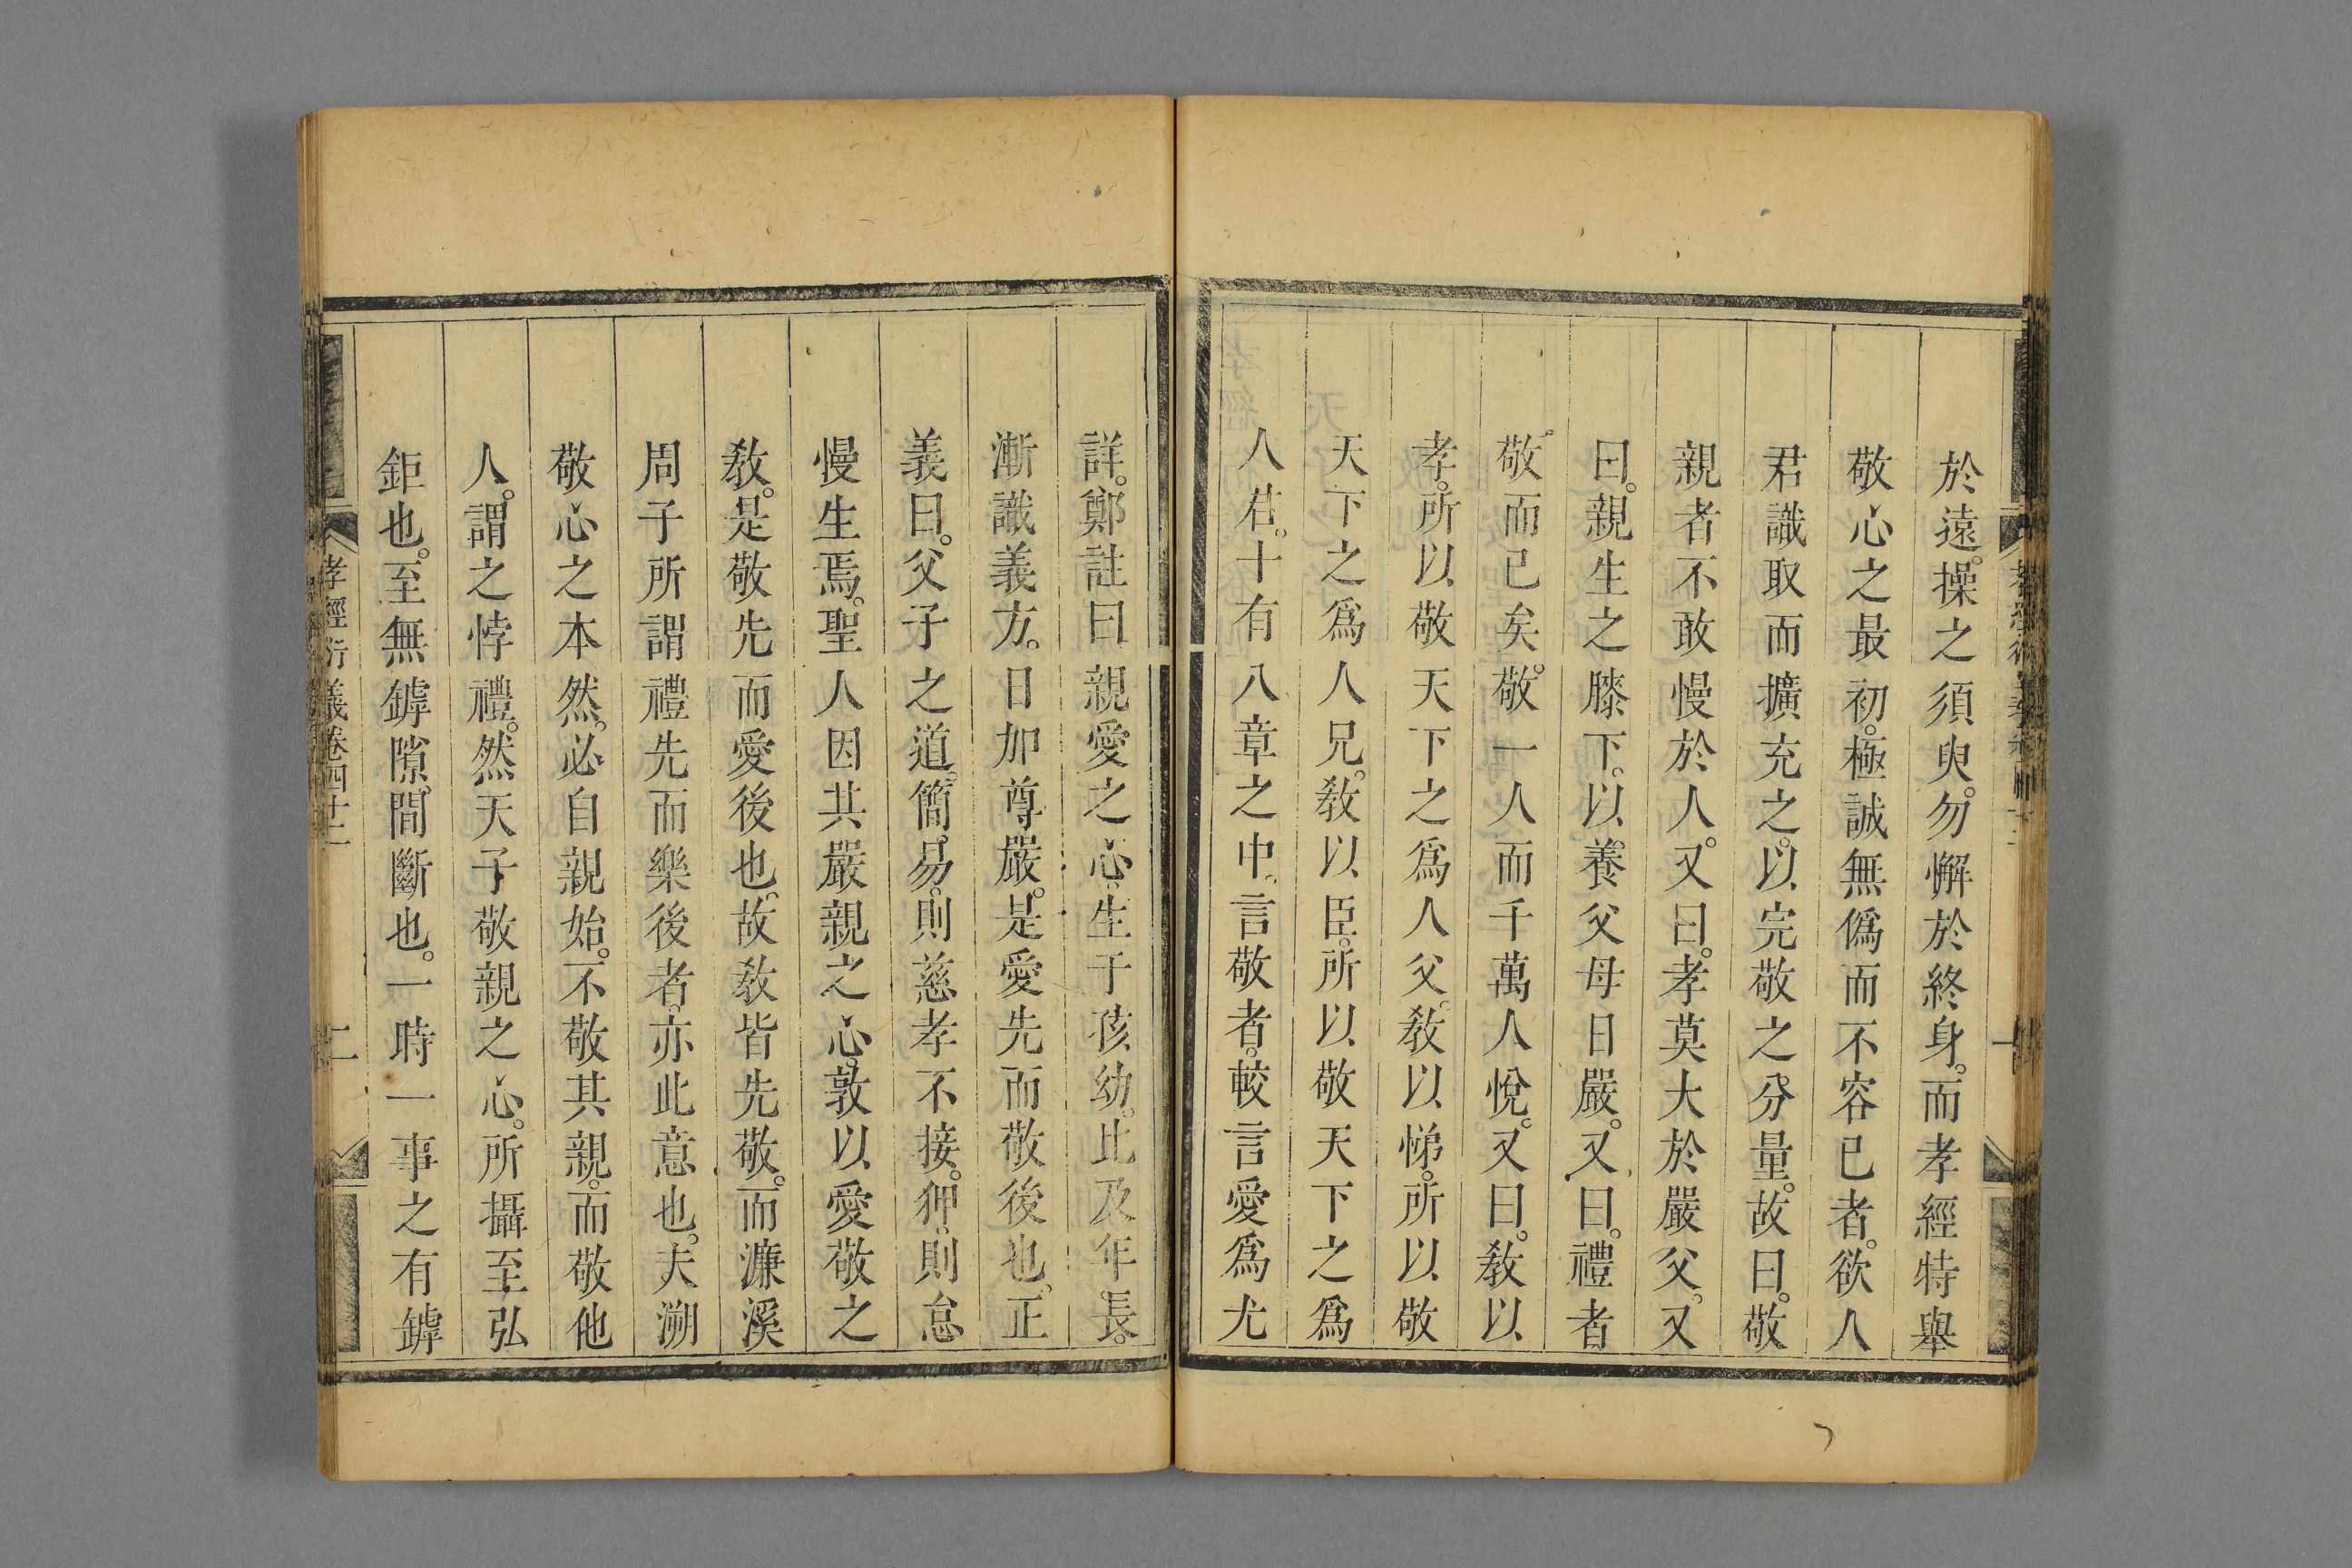 於遠。操之須臾。勿懈於終身。而孝經特舉
敬心之最初。極誠無僞而不容已者。欲人
君識取而擴充之。以完敬之分量。故曰。敬
親者不敢慢於人。又曰。孝莫大於嚴父。又
曰。親生之膝下。以養父母日嚴。又曰。禮者
敬而已矣。敬一人而千萬人悅。又曰。敎以
孝。所以敬天下之爲人父。敎以悌。所以敬
天下之爲人兄。敎以臣。所以敬天下之爲
人君。十有八章之中。言敬者。較言愛爲尤
詳。鄭註曰親愛之心。生于孩幼。比及年長。
漸識義方。日加尊嚴。是愛先而敬後也。正
義曰。父子之道。簡易。則慈孝不接。狎。則怠
慢生焉。聖人因其嚴親之心。敦以愛敬之
敎。是敬先而愛後也。故敎皆先敬。而濂溪
周子所謂禮先而樂後者。亦此意也。夫溯
敬心之本然。必自親始。不敬其親。而敬他
人。謂之悖禮。然天子敬親之心。所攝至弘
鉅也。至無罅隙間斷也。一時一事之有罅
孝經衍義卷四十二
二